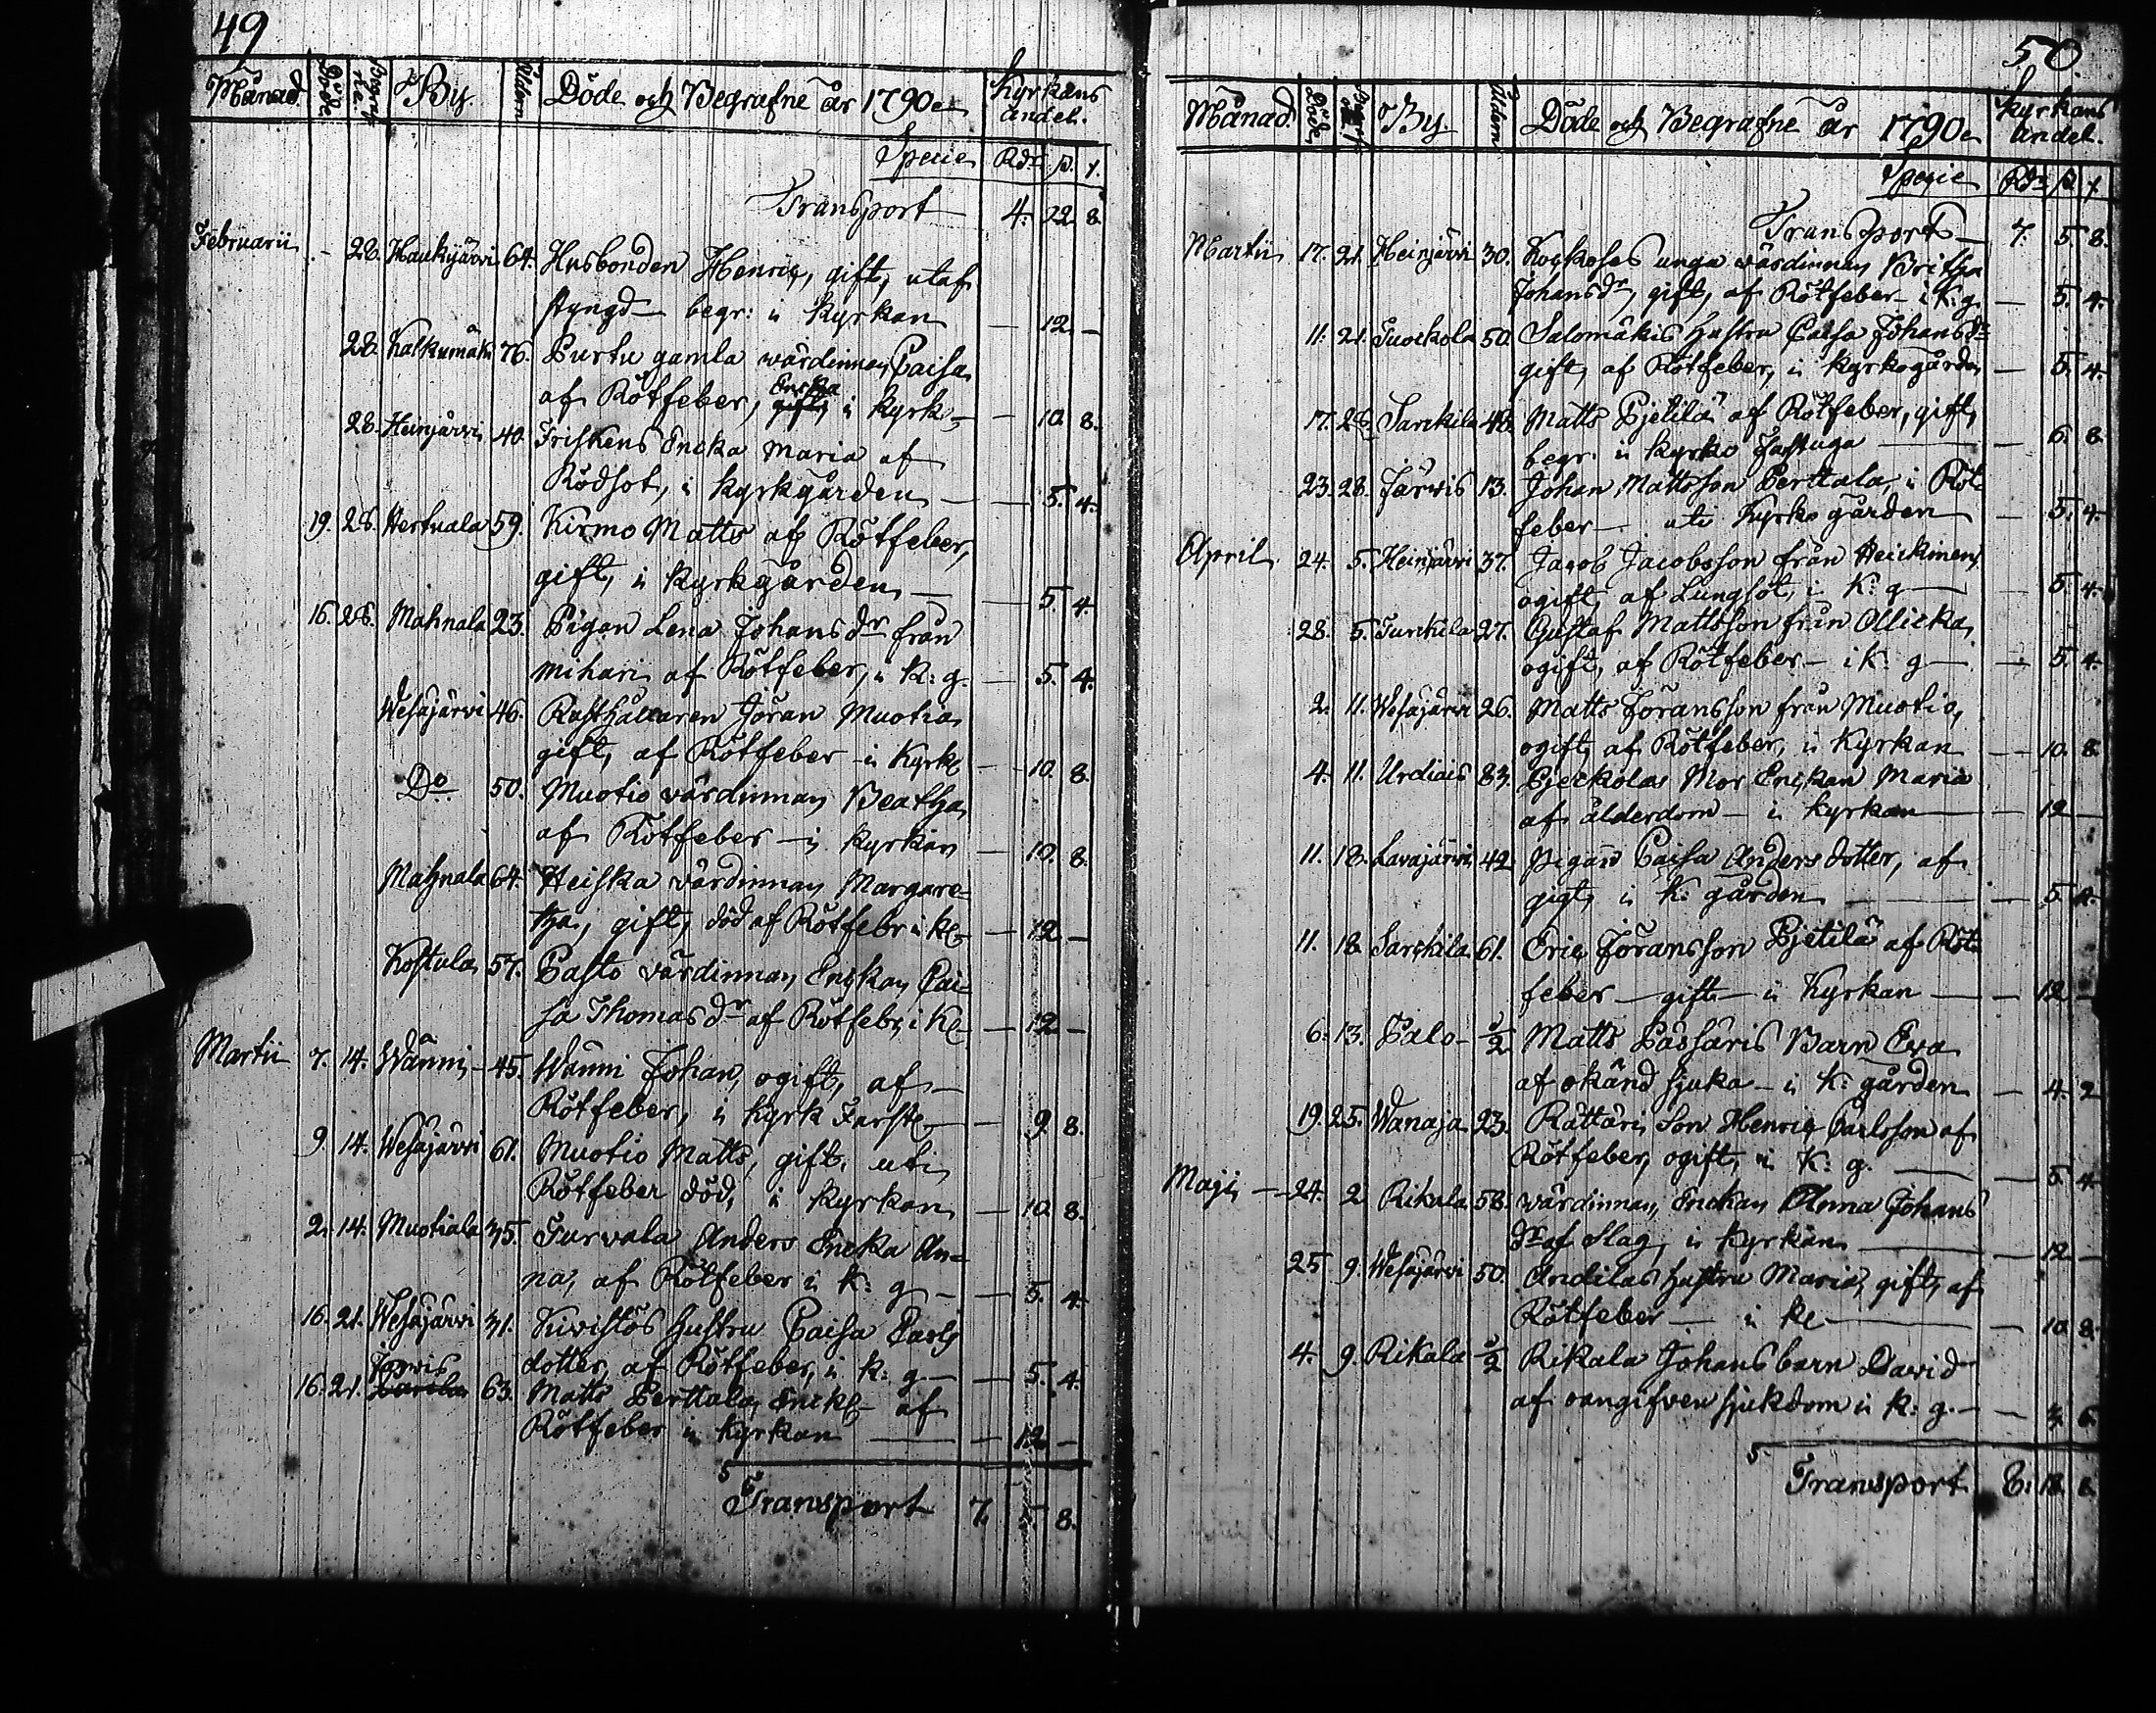 49
Månad. Döde Begrafne By. Åldern Döde och Begrafne år 1790. Kyrkans andel.
Specie Rdr ß. r.
Transport 4. 22 8.
Februarii - 28. Haukijärvi 64. Husbonden Henric, gift, utaf
styngd - begr: i Kyrkan - 12. -
28. Kalkumäki 76. Purtu gamla värdinnan Caisa
af Rötfeber, gift, Encka i Kyrk - 10. 8.
28. Heinjärvi 40. Friskens Encka Maria af
Rödsot, i Kyrkgården - 5. 4.
19. 28. Hertuala 59. Kirmo Matts af Rötfeber,
gift, i Kyrkgården - 5. 4.
16. 28. Mahnala 23. Pigan Lena Johans dr från
Mihari af Rötfeber, i K: g. - 5. 4.
Wesajärvi 46. Rusthållaren Jöran Muotia
gift, af Rötfeber - i Kyrk - 10. 8.
Do 50. Muotio värdinnan Beatha
af Rötfeber - i Kyrkan - 10. 8.
Mahnala 64. Heiska värdinnan Margare-
tha, gift, död af Rötfebr i K - 12 -
Kostula 57. Pasto värdinnan Enckan Cai-
sa Thomas dr af Rötfebr, i K - 12 -
Martii 7. 14. Wänni - 45. Wänni Johan, ogift, af
Rötfeber, i Kyrk Farst - 9. 8.
9. 14. Wesajärvi 61. Muotio Matts, gift, uti
Rötfeber död, i Kyrkan - 10. 8.
2. 14. Muotiala 35. Turvala Anders Encka An-
na, af Rötfeber i K: g - 5. 4.
16. 21. Wesajärvi 31. Kivistös hustru Caisa Carls
dotter, af Rötfeber, i K: g - 5. 4.
Järvis
16. 21. 63. Matts Perttala, Enckl - af
Rötfeber i Kyrkan - 12 -
Transport 7. 5 8.
50.
Månad. Döde Begraf By Åldern Döde och Begrafne år 1790. Kyrkans andel.
Specie Rdr ß r
Transport - 7. 5 8.
Martii 17. 21. Heinjärvi 30. Kockoses unga värdinnan Britha
Johansdr, gift, af Rötfeber - i K: g. - 5. 4.
11. 21. Tuockola 50. Salomäkis hustru Caisa Johans dr
gift, af Rötfeber, i Kyrkogården - 5. 4.
17. 28. Sarckila 48. Matts Pjetilä af Rötfeber, gift,
begr. i Kyrko Farstuga - 6. 8
23. 28. Järvis 13. Johan Mattsson Perttala, i Röt-
feber - uti Kyrko gården - 5. 4.
April 24. 5. Heinjärvi 37. Jacob Jacobsson från Heickinen
ogift, af Lungsot, i K: g - 5 4.
28. 5. Turckila 27. Gustaf Mattsson från Ollicka
ogift, af Rötfeber - i K: g - 5. 4.
2. 11. Wesajärvi 26. Matts Jöransson från Muotio,
ogift, af Rötfeber, i Kyrkan - 10. 8.
4. 11. Urdiais 83. Pjeckolas Mor Enckan Maria
af ålderdom - i Kyrkan - 12 -
11. 18. Lavajärvi 42 Pigan Caisa Anders dotter, af
gigt, i K: gården - 5 4.
11. 18. Sarckila 61. Eric Jöransson Pjetilä af Röt-
feber - gift - i Kyrkan - 12 -
6. 13. Palo - ½ Matts Passaris Barn Eva
af okänd sjuka - i K: gården - 4. 2
19. 25. Wanaja 23. Rättäri Son Henric Carlsson af
Rötfeber, ogift, i K: g. - 5. 4
Maji - 24. 2 Rikala 58. värdinnan, Enckan Anna Johans
dr af Slag, i Kyrkan - 12 -
25 9. Wesajärvi 50. Andilas hustru Maria, gift, af
Rötfeber - i K - 10. 8.
4. 9. Rikala ½ Rikala Johans barn David
af oangifven sjukdom i K: g. - 3. 6.
Transport 8: 18. 8.